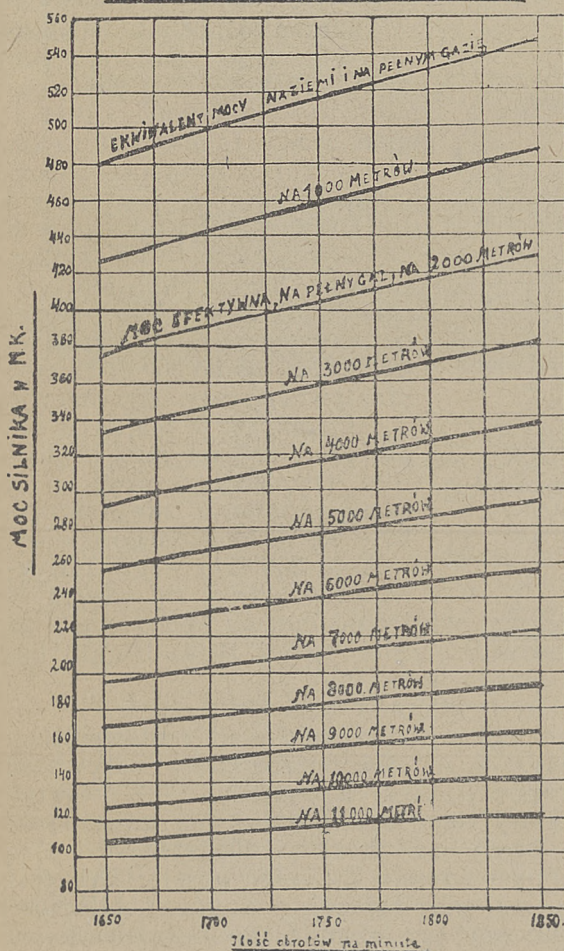 560
540
520
500
480
460
440
420
400
380
360
340
320
300
280
260
240
220
200
180
160
140
120
100
80
MOC SILNIKA W MK.
EKWIWALENT MOCY NA ZIEMI I NA PEŁNYM GAZIE
NA 1000 METRÓW
MOC EFEKTYWNA, NA PEŁNY GAZ, NA 2000 METRÓW
NA 3000 METRÓW
NA 4000 METRÓW
NA 5000 METRÓW
NA 6000 METRÓW
NA 7000 METRÓW
NA 8000 METRÓW
NA 9000 METRÓW
NA 10000 METRÓW
NA 11000 METRÓ
1650 1700 1750 1800 1850
Ilość obrotów na minutę